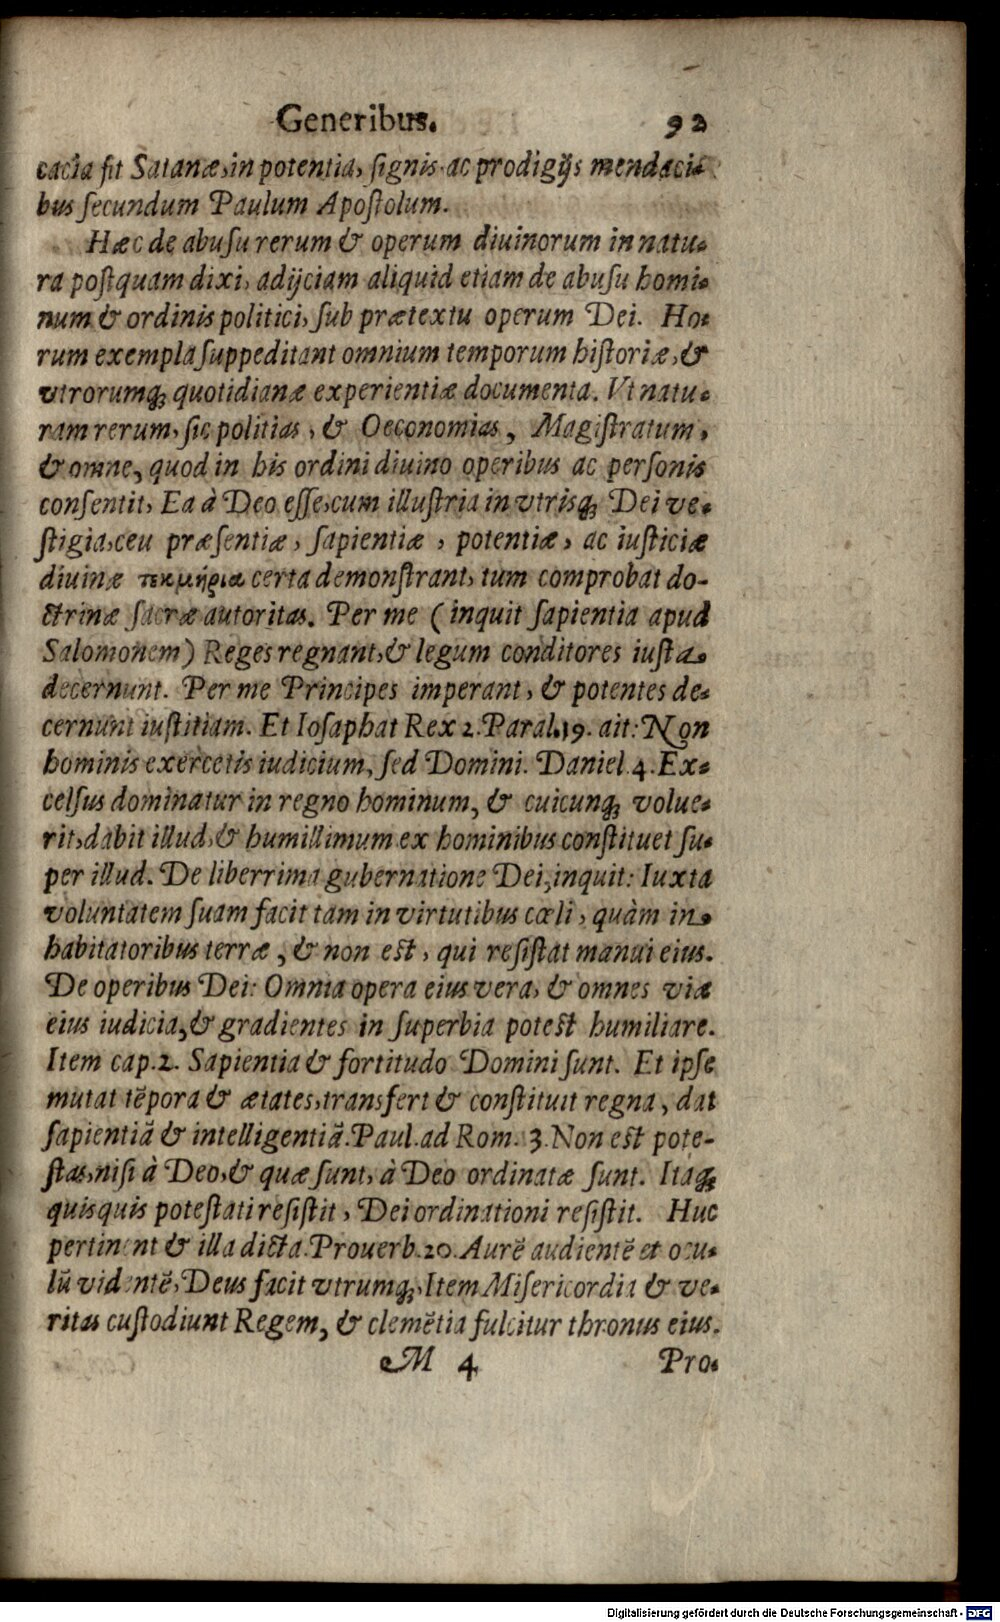 Generibus. 92
cacia fit Satanæ, in potentia, signis ac prodigijs mendaci-
bus secundum Paulum Apostolum.
Hæc de abusu rerum & operum diuinorum in natu-
ra postquam dixi, adijciam aliquid etiam de abusu homi-
num & ordinis politici, sub prætextu operum Dei. Ho-
rum exempla suppeditant omnium temporum historiæ, &
vtrorumq́; quotidianæ experientiæ documenta. Vt natu-
ram rerum, sic politias, & Oeconomias, Magistratum,
& omne, quod in his ordini diuino operibus ac personis
consentit, Ea à Deo esse, cum illustria in vtrisq́; Dei ve-
stigia, ceu præsentiæ, sapientiæ, potentiæ, ac iusticiæ
diuinæ τεκμήρια certa demonstrant, tum comprobat do-
ctrinæ sacræ autoritas. Per me (inquit sapientia apud
Salomonem) Reges regnant, & legum conditores iusta
decernunt. Per me Principes imperant, & potentes de-
cernunt iustitiam. Et Iosaphat Rex 2. Paral. 19. ait: Non
hominis exercetis iudicium, sed Domini. Daniel. 4. Ex-
celsus dominatur in regno hominum, & cuicunq́; volue-
rit, dabit illud, & humillimum ex hominibus constituet su-
per illud. De liberrima gubernatione Dei, inquit: Iuxta
voluntatem suam facit tam in virtutibus cœli, quàm in
habitatoribus terræ, & non est, qui resistat manui eius.
De operibus Dei: Omnia opera eius vera, & omnes viæ
eius iudicia, & gradientes in superbia potest humiliare.
Item cap. 2. Sapientia & fortitudo Domini sunt. Et ipse
mutat tēpora & ætates, transfert & constituit regna, dat
sapientiā & intelligentiā. Paul. ad Rom. 3. Non est pote-
stas, nisi à Deo, & quæ sunt, à Deo ordinatæ sunt. Itaq́;
quisquis potestati resistit, Dei ordinationi resistit. Huc
pertinent & illa dicta. Prouerb. 20. Aurē audientē et ocu-
lū videntē, Deus facit vtrumq́;, Item Misericordia & ve-
ritas custodiunt Regem, & clemētia fulcitur thronus eius.
M 4 Pro-
Digitalisierung gefördert durch die Deutsche Forschungsgemeinschaft - DFG